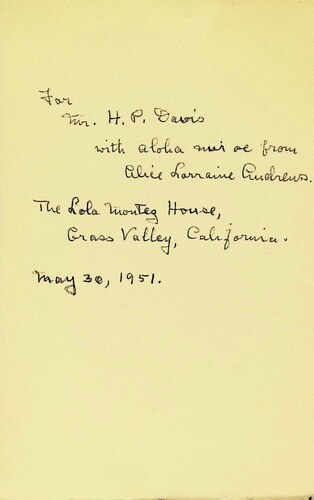 For
Mr. H. P. Davis
with aloha nui oe from
Alice Lorraine Andrews.
The Lola Montez House,
Grass Valley, California.
May 30, 1951.